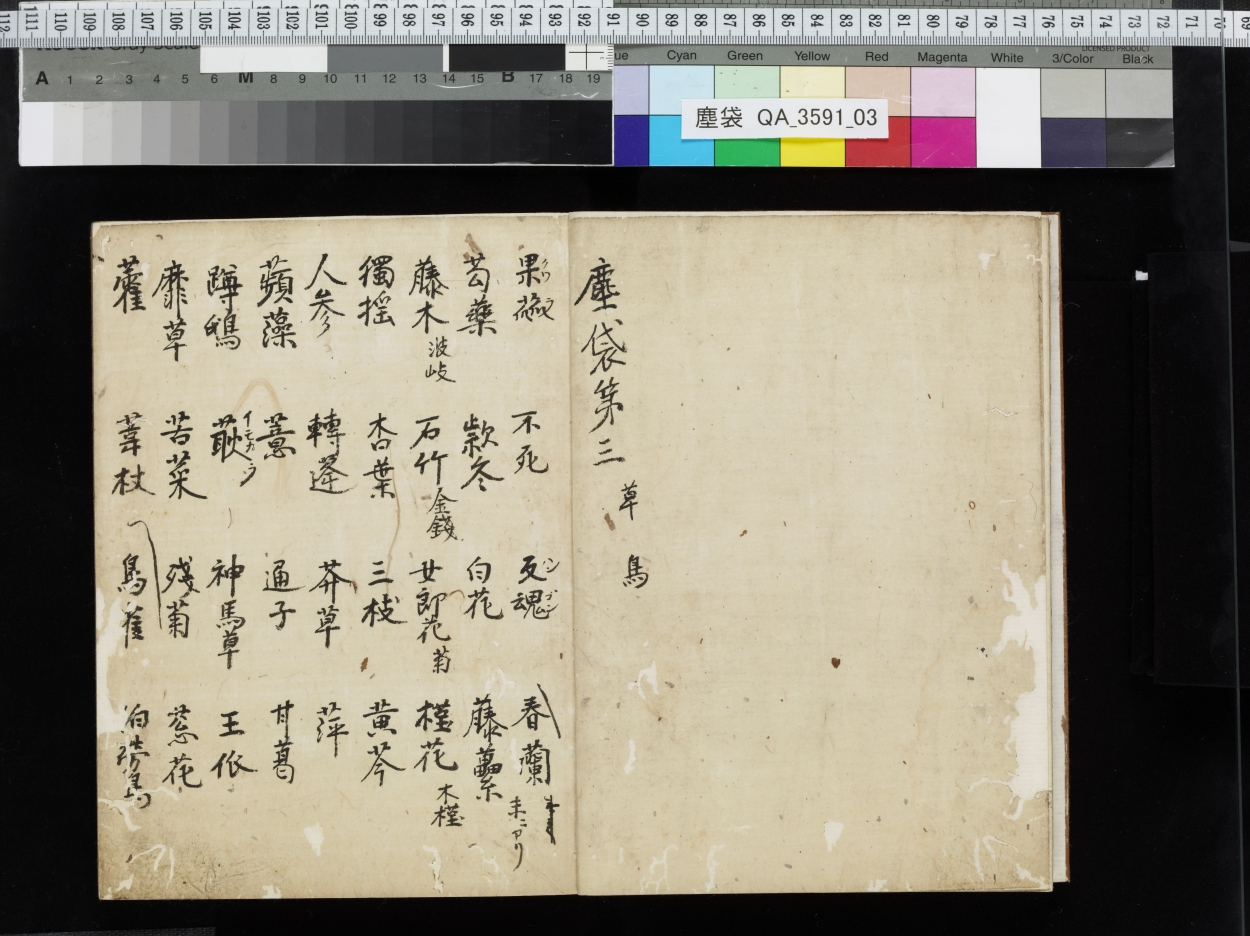 112 111 110 109 108 107 106 105 104 103 102 101 100 99 98 97 96 95 94 93 92 91 90 89 88 87 86 85 84 83 82 81 80 79 78 77 76 75 74 73 72 71 70 69
LICENSED PRODUCT
Cyan Green Yellow Red Magenta White 3/Color Black
A 1 2 3 4 5 6 M 8 9 10 11 12 13 14 15 B 17 18 19
塵袋 QA_3591_03
塵袋第三 草 鳥
果蓏 不死 反魂 春蘭 末ニアリ
芍藥 款冬 白花 藤蘽
藤木 波岐 石竹 金錢 女郎花 菊 槿花 木槿
獨揺 杏葉 三枝 黄芩
人参 轉蓬 莽草 萍
蘋藻 薏 通子 甘葛
蹲鴟 蔌 イモカラ 神馬草 王依
靡草 苦菜 残菊 葱花
藿 葦杖 鳥 隹 伯勞鳥